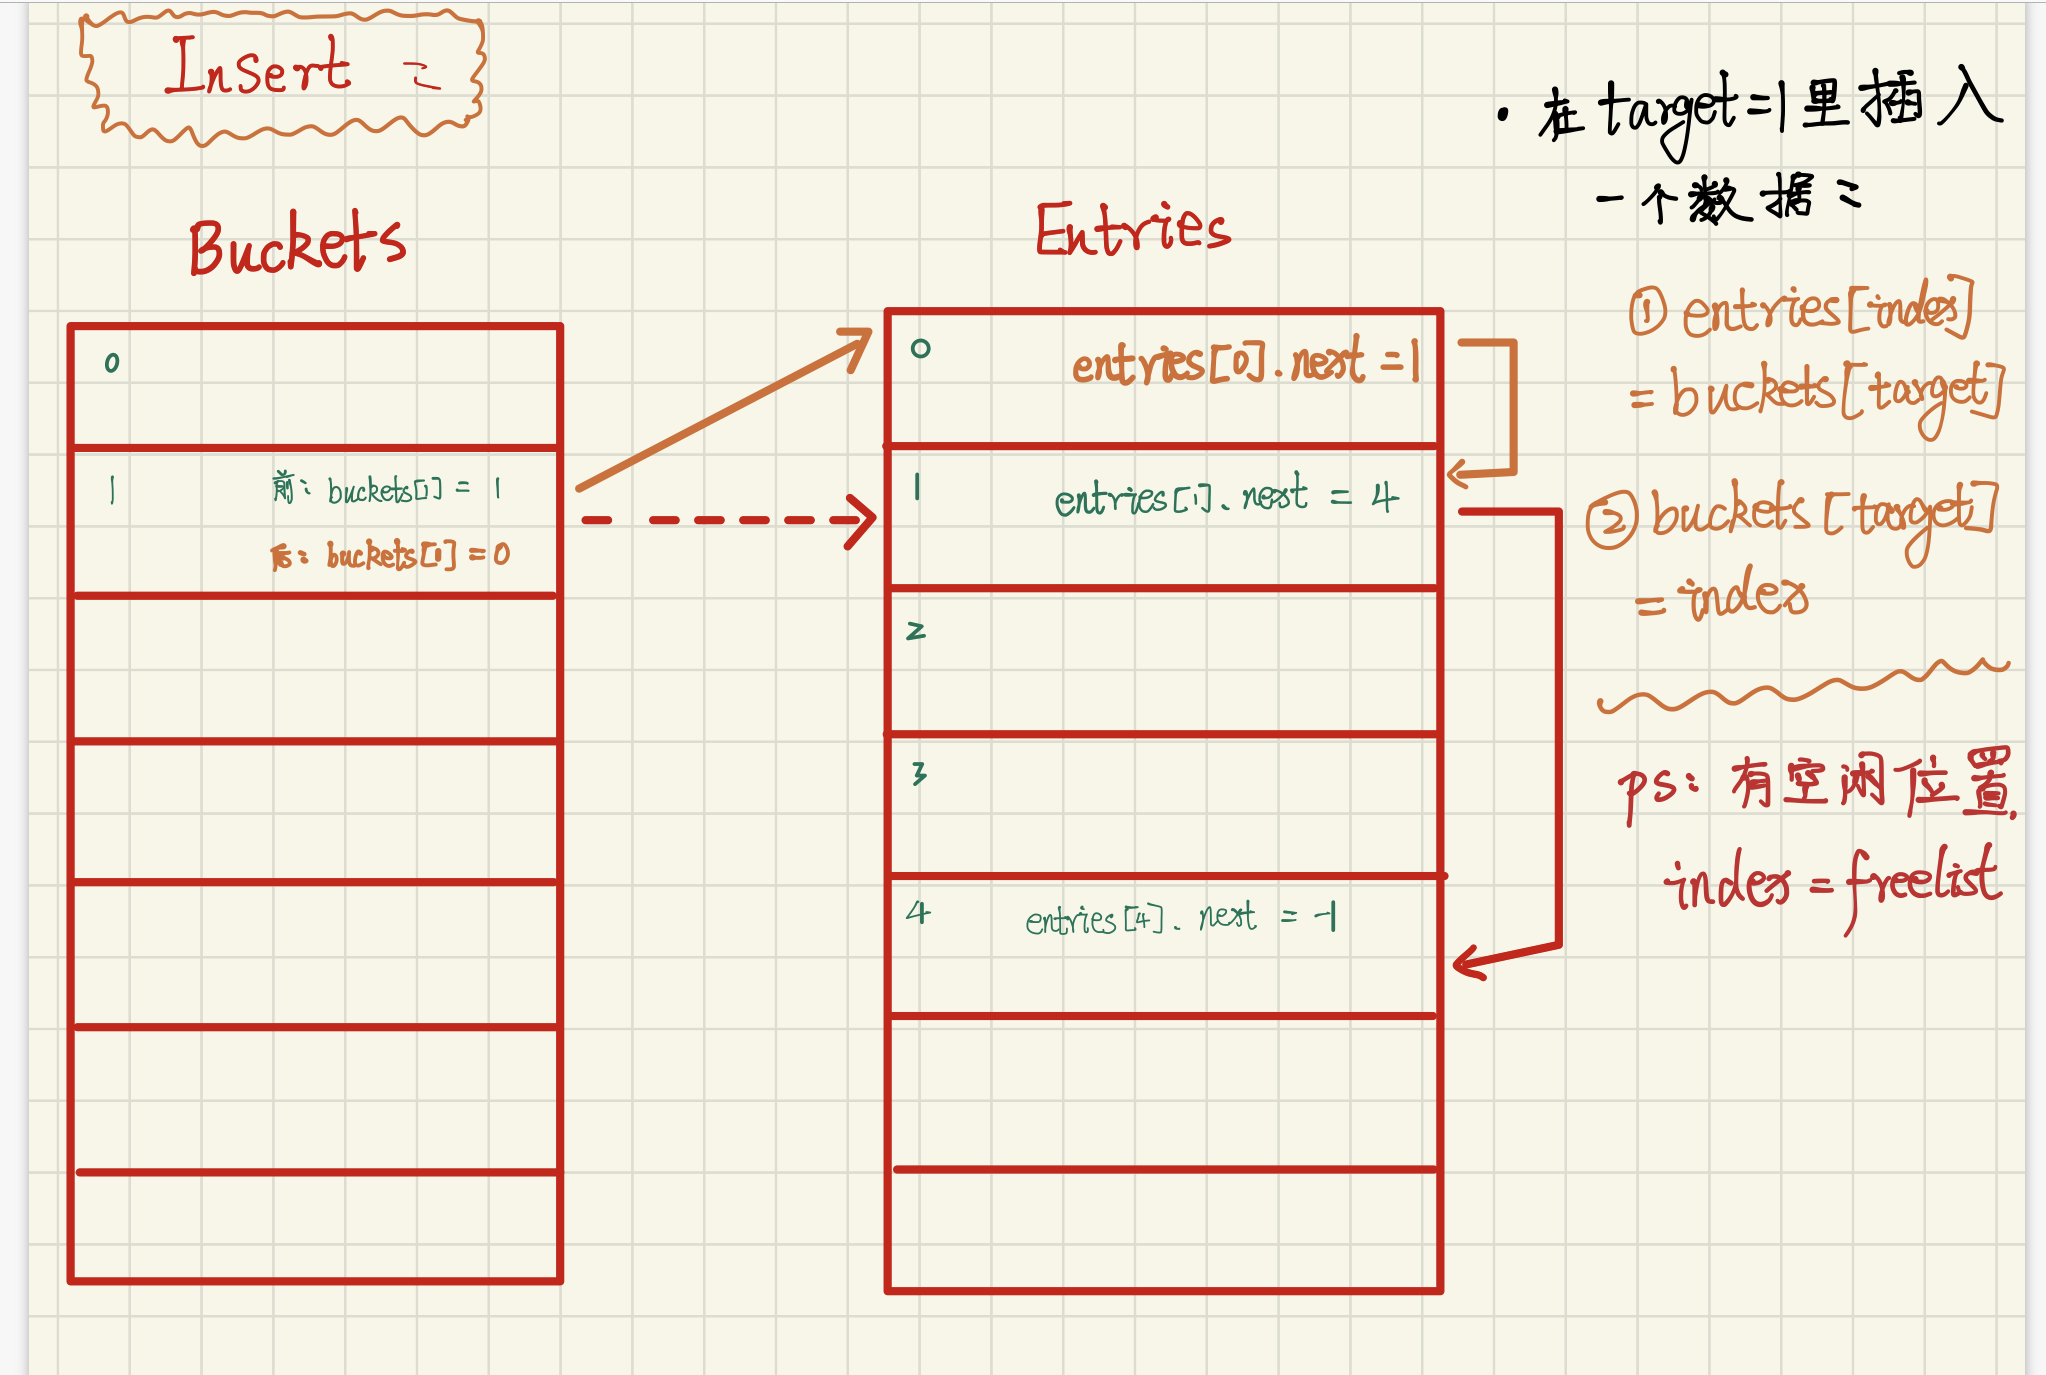 Insert :
Buckets
0
1 前: buckets[1] = 1
后: buckets[1] = 0
Entries
0 entries[0].next = 1
1 entries[1].next = 4
2
3
4 entries[4].next = -1
· 在target=1里插入
一个数据:
① entries[index]
= buckets[target]
② buckets[target]
= index
ps: 有空闲位置.
index = freelist